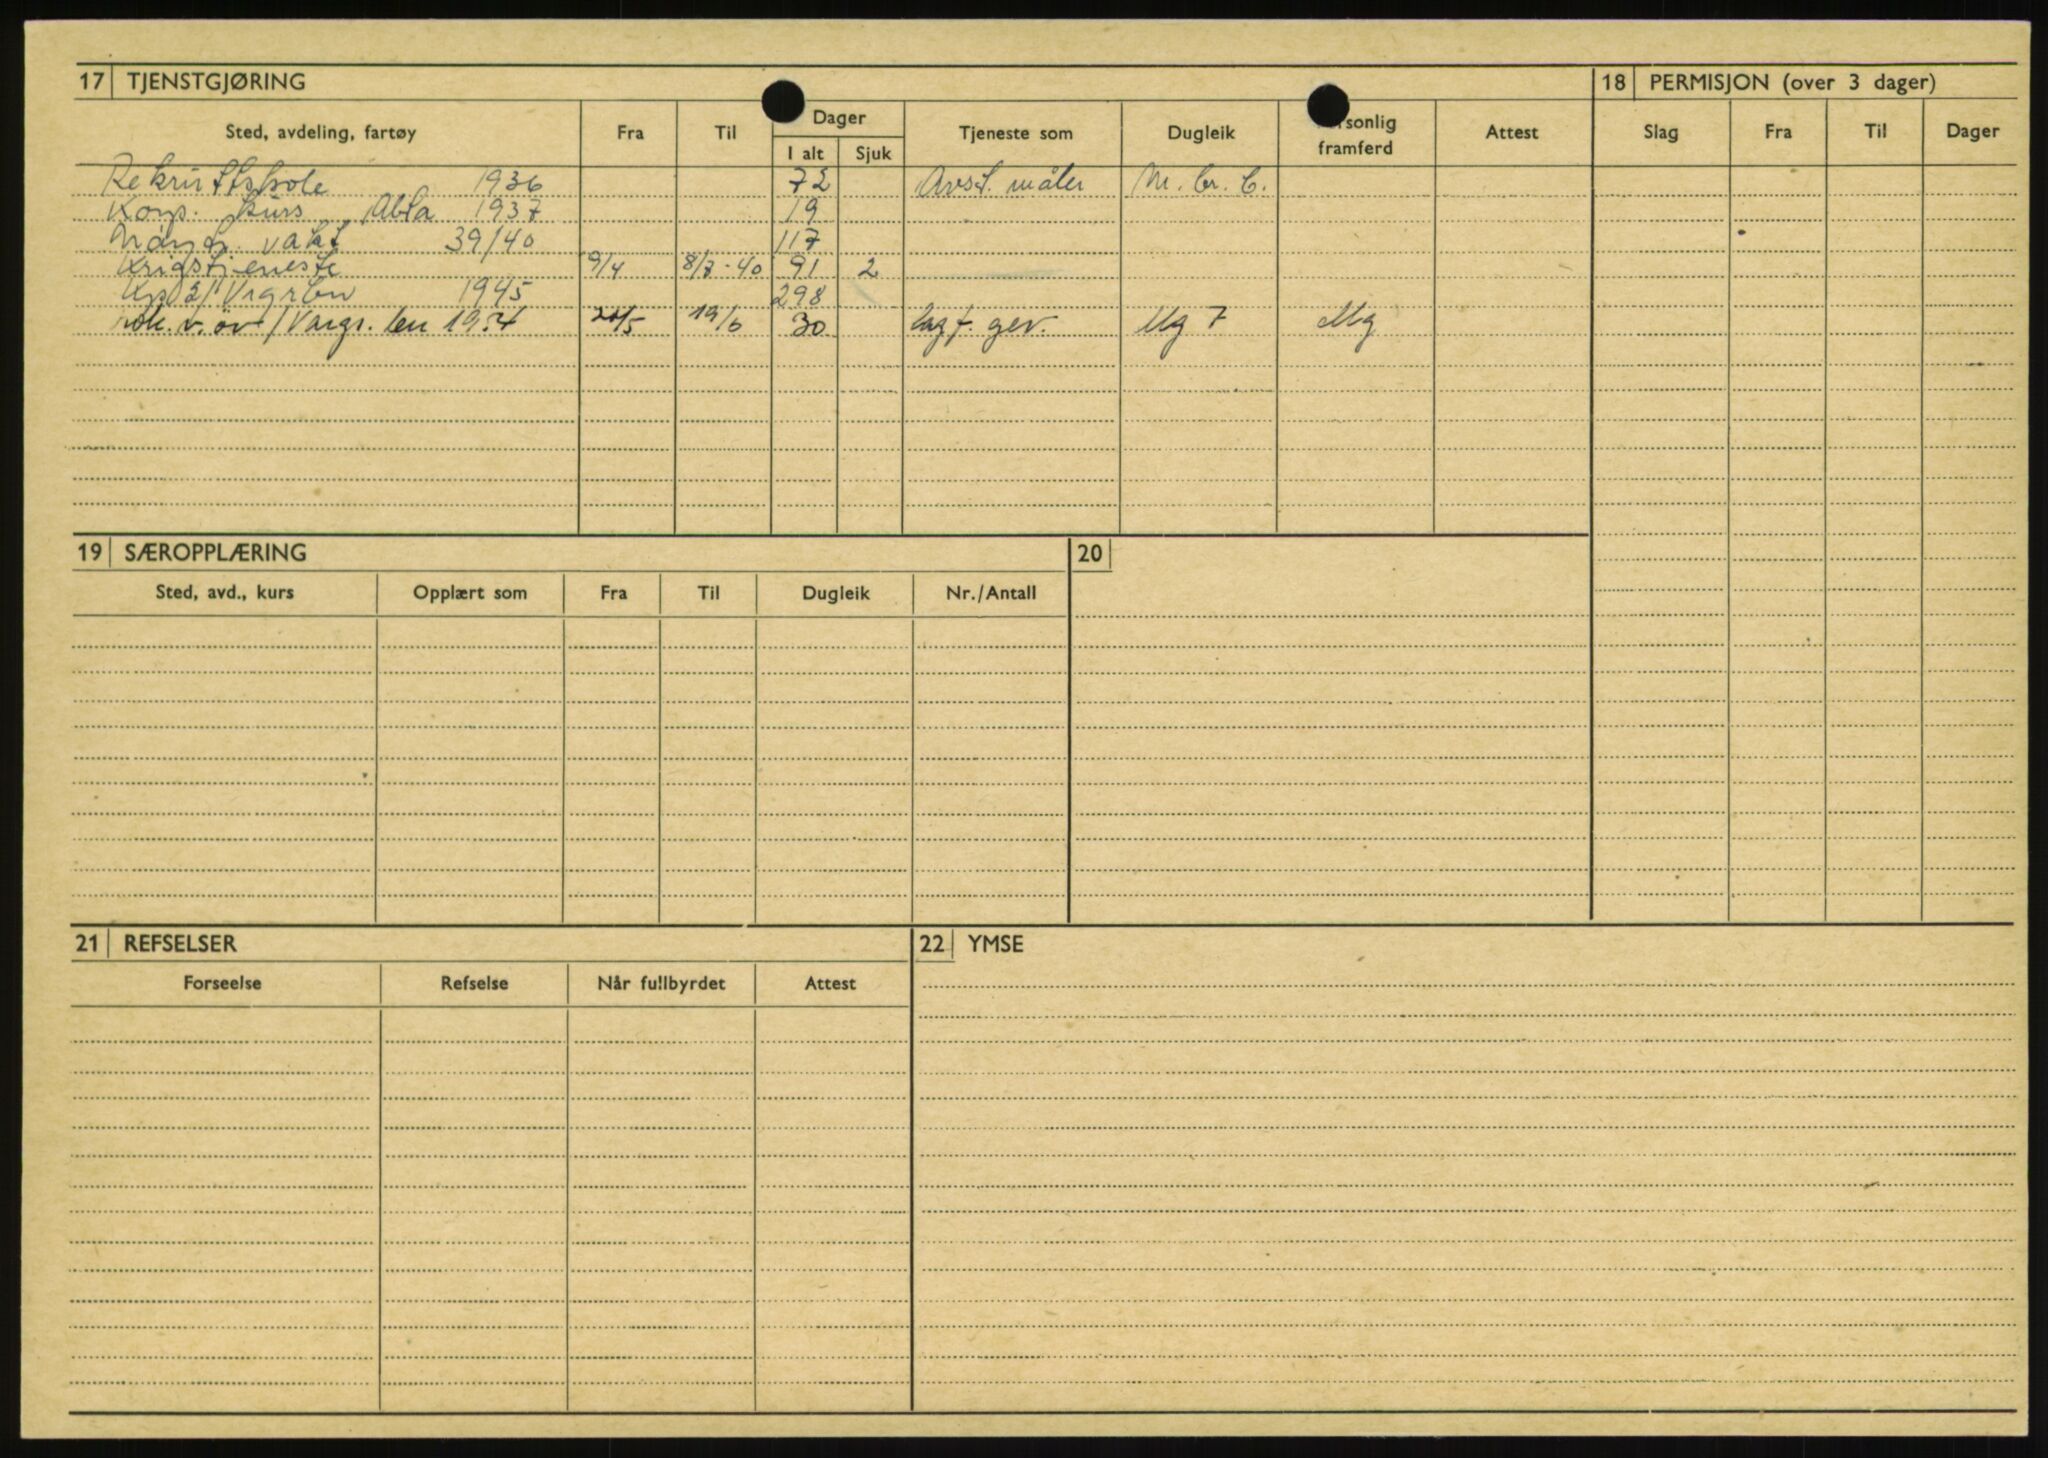 17 TJENSTGJØRING 18 PERMISJON (over 3 dager)
Sted, avdeling, fartøy Fra Til Dager Tjeneste som Dugleik rsonlig framferd Attest Slag Fra Til Dager
I alt Sjuk
Rekruttskole 1936 72 Avst. måler M. br. b.
Korp. kurs Alta 1937 19
vakt 39/40 117
Krigstjeneste 9/4 8/7-40 91 2
Kp 2/Vrgrbn 1945 298
v. øv / Vargr. bn 1954 19/6 30 lagf. gev. Mg 7 Mg
19 SÆROPPLÆRING 20
Sted, avd., kurs Opplært som Fra Til Dugleik Nr./Antall
21 REFSELSER 22 YMSE
Forseelse Refselse Når fullbyrdet Attest